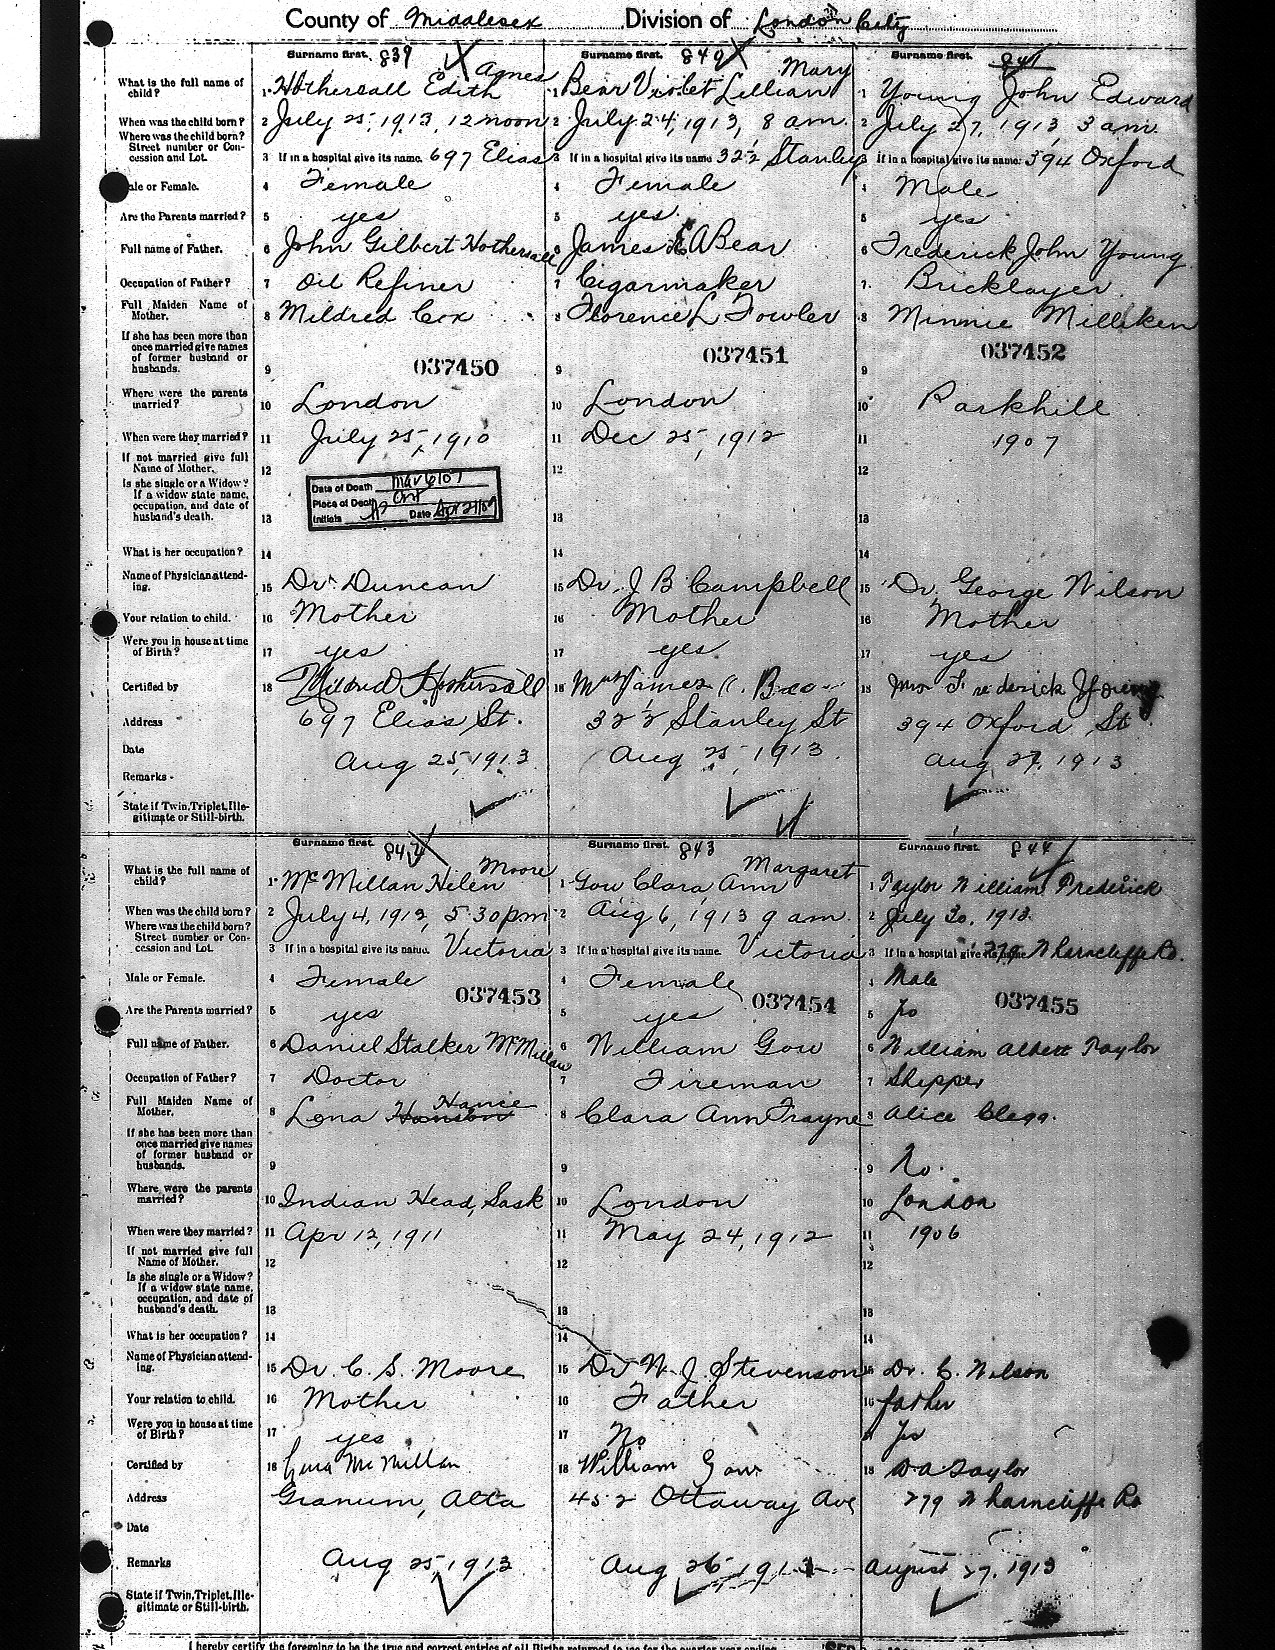 County of Middlesex Division of London City
Surname first. 839 Surname first. 840 Surname first. 841
What is the full name of child? 1 Hothersall Edith Agnes 1 Bear Violet Lillian Mary 1 Young John Edward
When was the child born? 2 July 25, 1913, 12 noon 2 July 24, 1913, 8 am. 2 July 27, 1913 3 am
Where was the child born?
Street number or Concession and Lot. 3 If in a hospital give its name. 697 Elias 3 If in a hospital give its name 32½ Stanley 3 If in a hospital give its name: 394 Oxford
Male or Female. 4 Female 4 Female 4 Male
Are the Parents married? 5 yes 5 yes. 5 yes
Full name of Father. 6 John Gilbert Hothersall 6 James A Bear 6 Frederick John Young
Occupation of Father? 7 Oil Refiner 7 Cigarmaker 7. Bricklayer
Full Maiden Name of Mother. 8 Mildred Cox 8 Florence L Fowler 8 Minnie Milliken
If she has been more than once married give names of former husband or husbands. 9 037450 9 037451 9 037452
Where were the parents married? 10 London 10 London 10 Parkhill
When were they married? 11 July 25, 1910 11 Dec 25, 1912 11 1907
If not married give full Name of Mother. 12 12 12
Is she single or a Widow? If a widow state name, occupation, and date of husband's death. 13 13 13
Date of Death
Place of Death Ont
Initials Date
What is her occupation? 14 14 14
Name of Physician attending. 15 Dr. Duncan 15 Dr. J B Campbell 15 Dr. George Wilson
Your relation to child. 16 Mother 16 Mother 16 Mother
Were you in house at time of Birth? 17 yes 17 yes. 17 yes
Certified by 18 Mildred Hothersall 18 Mrs James 18 Mrs Frederick Young
Address 697 Elias St. 32½ Stanley St 394 Oxford St
Date Aug 25, 1913 Aug 25, 1913. Aug 27, 1913
Remarks -
State if Twin, Triplet, Illegitimate or Still-birth.
Surname first. 842 Surname first. 843 Surname first. 844
What is the full name of child? 1 McMillan Helen Moore 1 Gow Clara Ann Margaret 1 Taylor William Frederick
When was the child born? 2 July 4, 1913, 5 30 pm 2 Aug 6, 1913 9 am. 2 July 30, 1913.
Where was the child born?
Street number or Concession and Lot. 3 If in a hospital give its name. Victoria 3 If in a hospital give its name. Victoria 3 If in a hospital give its name 279 Wharncliffe Rd.
Male or Female. 4 Female 4 Female 4 Male
037453 037454 037455
Are the Parents married? 5 yes 5 yes 5 yes
Full name of Father. 6 Daniel Stalker McMillan 6 William Gow 6 William Albert Taylor
Occupation of Father? 7 Doctor 7 Fireman 7 Shipper
Full Maiden Name of Mother. 8 Lena Hanson Hance 8 Clara Ann Frayne 8 Alice Clegg.
If she has been more than once married give names of former husband or husbands. 9 9 9 No.
Where were the parents married? 10 Indian Head, Sask 10 London 10 London
When were they married? 11 Apr 12, 1911 11 May 24, 1912 11 1906
If not married give full Name of Mother. 12 12 12
Is she single or a Widow? If a widow state name, occupation, and date of husband's death. 13 13 13
What is her occupation? 14 14 14
Name of Physician attending. 15 Dr. C. S. Moore 15 Dr W. J. Stevenson 15 Dr. C. Wilson
Your relation to child. 16 Mother 16 Father 16 father
Were you in house at time of Birth? 17 yes 17 No 17 yes
Certified by 18 Lena McMillan 18 William Gow 18 W A Taylor
Address Granum, Alta 452 Ottaway Ave 279 Wharncliffe Rd
Date
Remarks Aug 25, 1913 Aug 26 1913 August 27, 1913
State if Twin, Triplet, Illegitimate or Still-birth.
I hereby certify the foregoing to be the true and correct entries of all Births returned to me for the quarter year ending